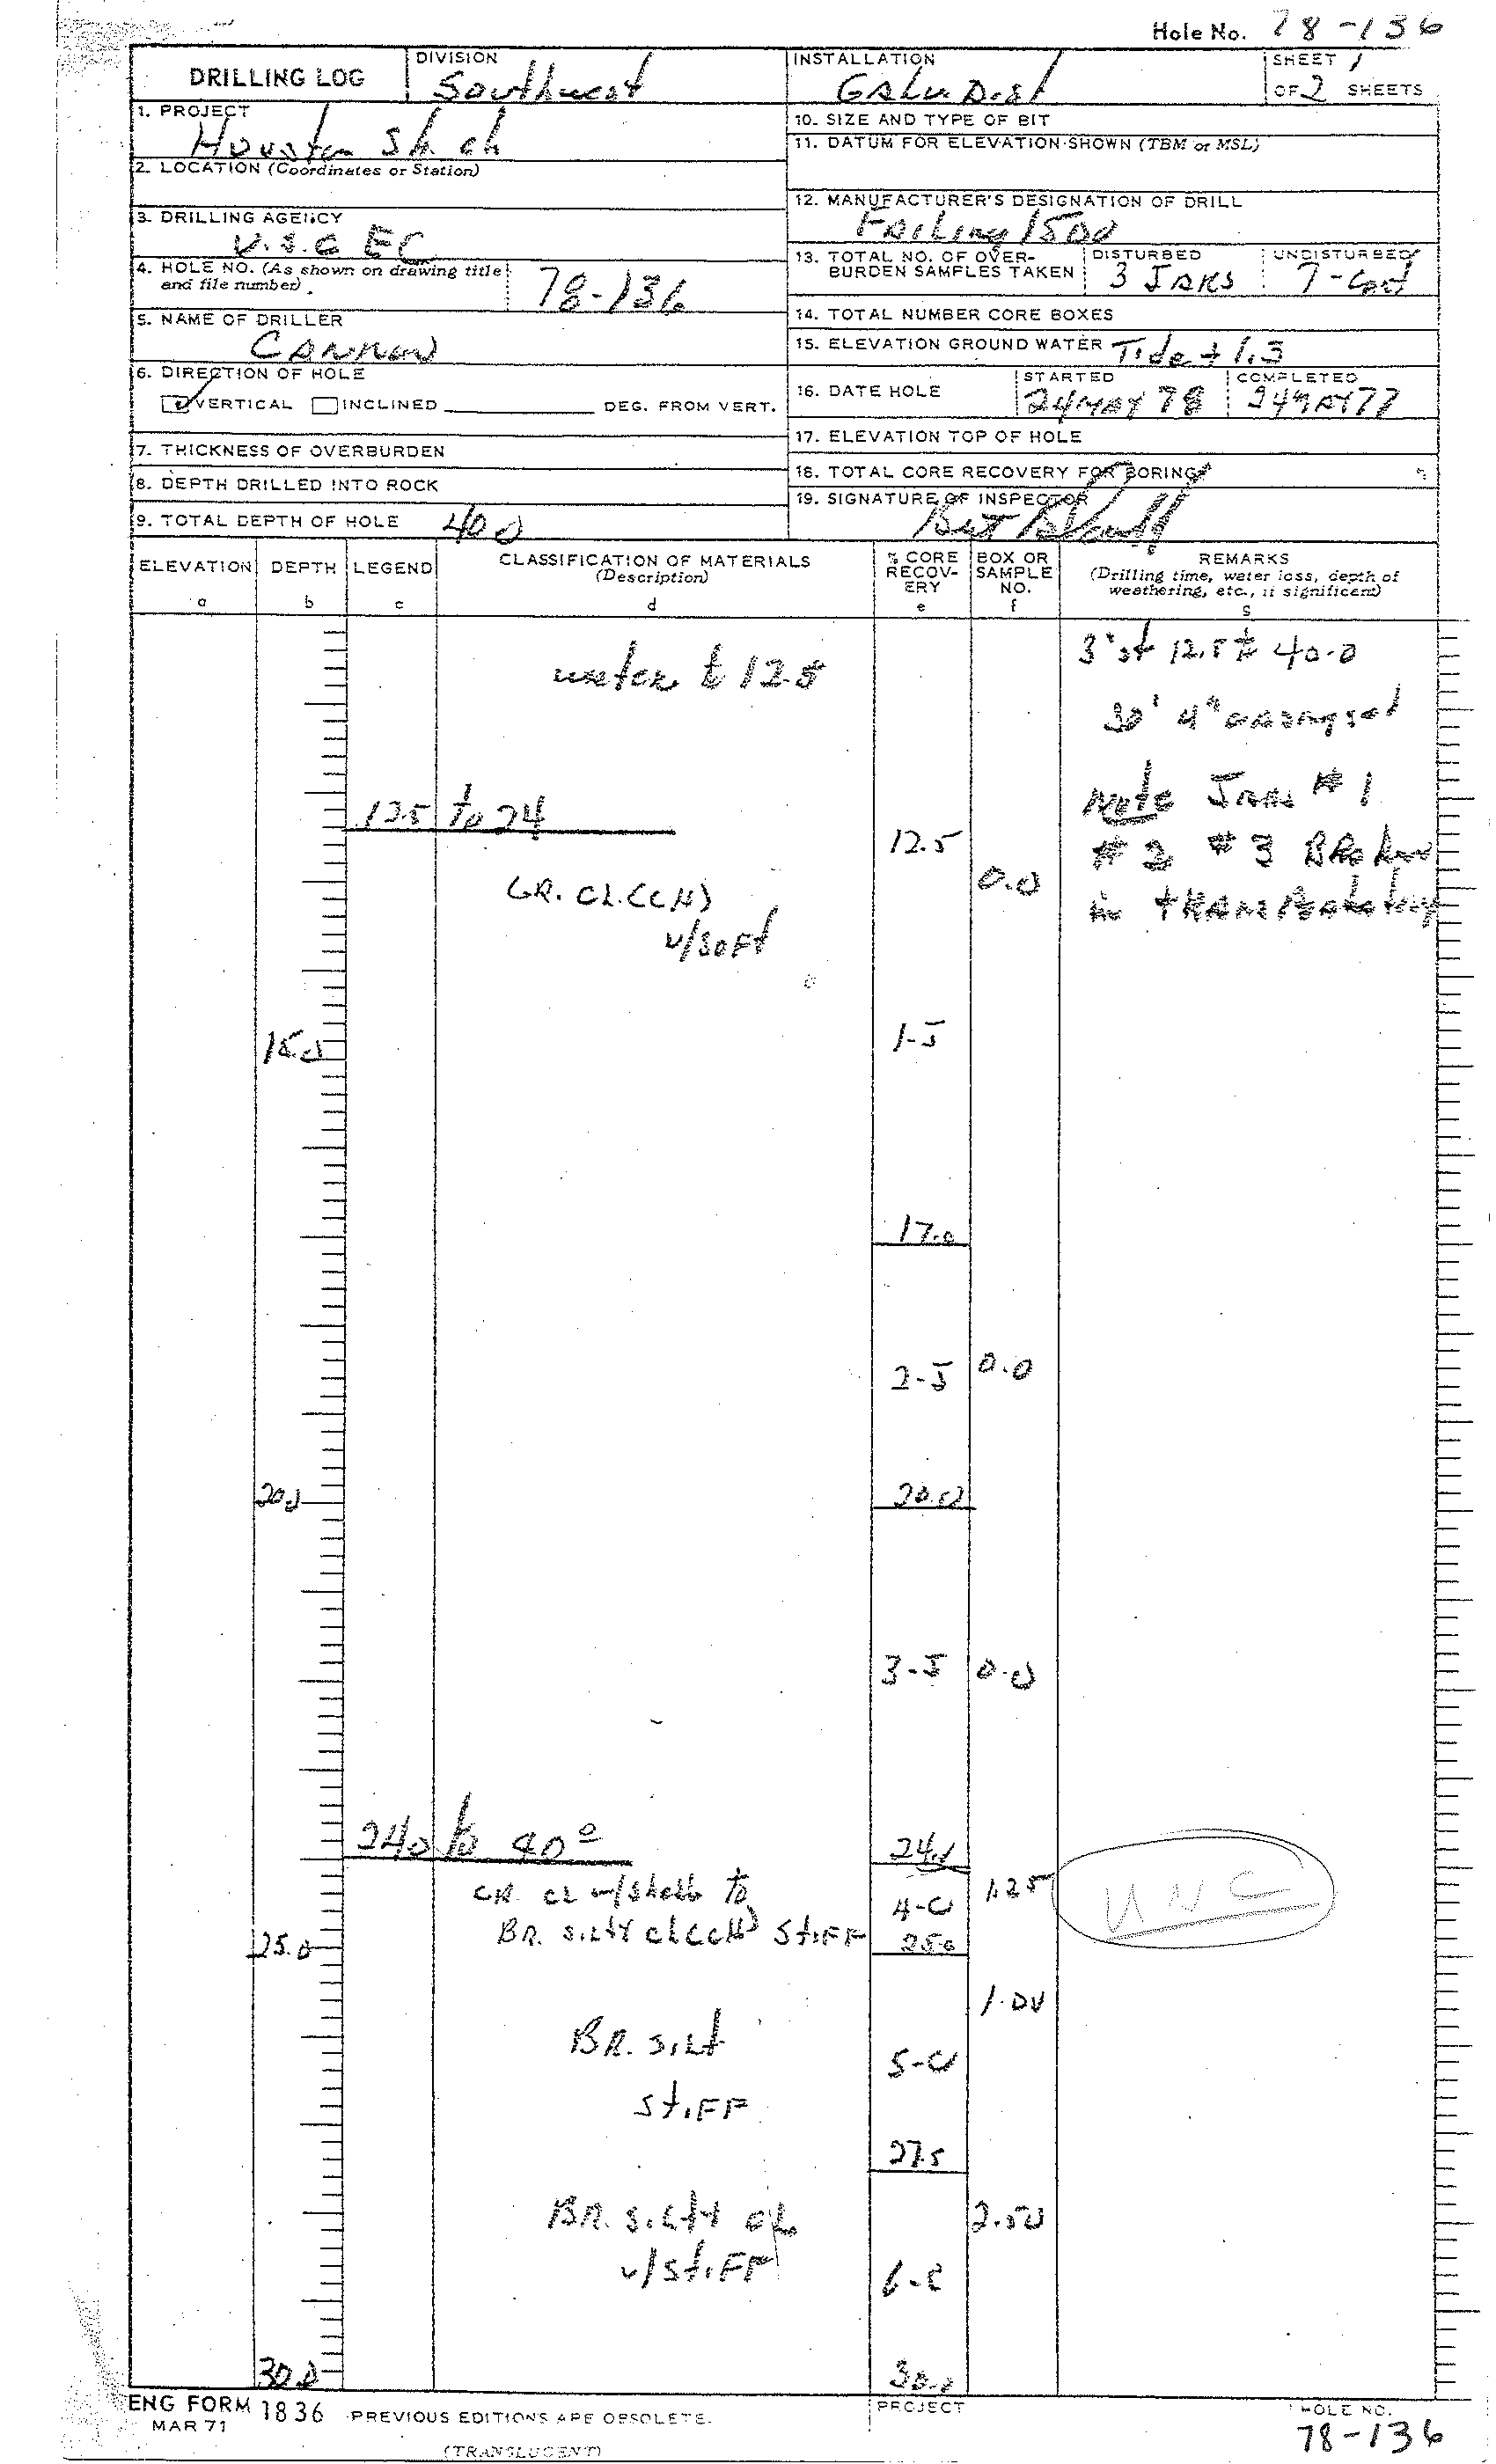 Hole No. 78-136
DRILLING LOG
DIVISION
Southwest
INSTALLATION
Galv. Dist
SHEET 1
OF 2 SHEETS
1. PROJECT
Houston Sh. ch
10. SIZE AND TYPE OF BIT
11. DATUM FOR ELEVATION SHOWN (TBM or MSL)
2. LOCATION (Coordinates or Station)
12. MANUFACTURER'S DESIGNATION OF DRILL
Failing 1500
3. DRILLING AGENCY
U.S.C EC
13. TOTAL NO. OF OVER-
BURDEN SAMPLES TAKEN
DISTURBED
3 JARS
UNDISTURBED
7-Cart
4. HOLE NO. (As shown on drawing title
and file number)
78-136
14. TOTAL NUMBER CORE BOXES
5. NAME OF DRILLER
CANNON
15. ELEVATION GROUND WATER Tide + 1.3
6. DIRECTION OF HOLE
VERTICAL INCLINED DEG. FROM VERT.
16. DATE HOLE
STARTED
24 MAY 78
COMPLETED
24 MAY 77
17. ELEVATION TOP OF HOLE
7. THICKNESS OF OVERBURDEN
18. TOTAL CORE RECOVERY FOR BORING
8. DEPTH DRILLED INTO ROCK
19. SIGNATURE OF INSPECTOR
9. TOTAL DEPTH OF HOLE 40.0
ELEVATION
a
DEPTH
b
LEGEND
c
CLASSIFICATION OF MATERIALS
(Description)
d
% CORE
RECOV-
ERY
e
BOX OR
SAMPLE
NO.
f
REMARKS
(Drilling time, water loss, depth of
weathering, etc., if significant)
g
water to 12.5
3" st 12.5 to 40.0
30' 4" casing set
Note Jars #1
#2 #3 Broken
in transportation
12.5 to 24
12.5
GR. CL. (CH)
v/SOFT
0.0
15.0
1-J
17.0
2-J 0.0
20.0
20.0
3-J 0.0
24.0 to 40.0
24.0
GR. CL w/shells to
BR. SILTY CL (CH) STIFF
4-C
1.25
UNC
25.0
25.0
1.00
BR. SILT
STIFF
5-C
27.5
BR. SILTY CL
v/STIFF
2.50
6-C
30.0
30.0
ENG FORM 1836
MAR 71
PREVIOUS EDITIONS ARE OBSOLETE.
(TRANSLUCENT)
PROJECT
HOLE NO.
78-136